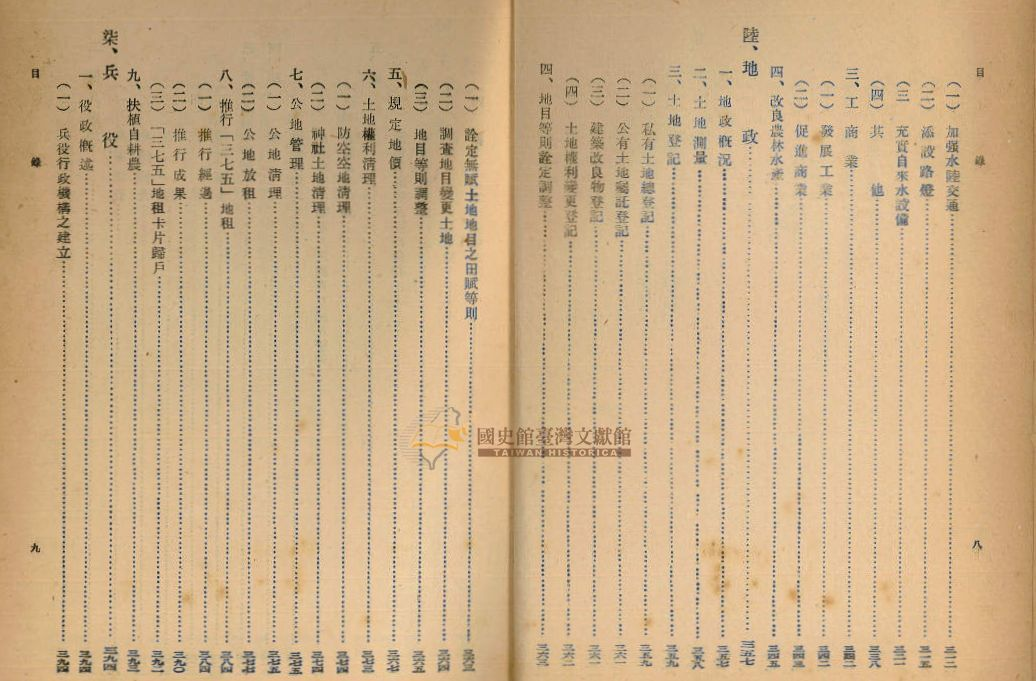 目錄 八
(一) 加强水陸交通……三一二
(二) 添設路燈……三一五
(三) 充實自來水設備……三二一
(四) 其他……三三八
三、工商業……三四二
(一) 發展工業……三四二
(二) 促進商業……三四三
四、改良農林水產……三四五
陸、地政……三五七
一、地政概況……三五七
二、土地測量……三五八
三、土地登記……三五九
(一) 私有土地總登記……三五九
(二) 公有土地囑託登記……三六一
(三) 建築改良物登記……三六一
(四) 土地權利變更登記……三六二
四、地目等則詮定調整……三六三
(一) 詮定無賦土地地目之田賦等則……三六三
(二) 調查地目變更土地……三六四
(三) 地目等則調整……三六五
五、規定地價……三六七
六、土地權利清理……三七三
(一) 防空空地清理……三七三
(二) 神社土地清理……三七四
七、公地管理……三七五
(一) 公地清理……三七五
(二) 公地放租……三七七
八、推行「三七五」地租……三八四
(一) 推行經過……三八四
(二) 推行成果……三九〇
(三) 「三七五」地租卡片歸戶……三九二
九、扶植自耕農……三九三
柒、兵役……三九四
一、役政概述……三九四
(一) 兵役行政機構之建立……三九四
目錄 九
國史館臺灣文獻館
TAIWAN HISTORICA